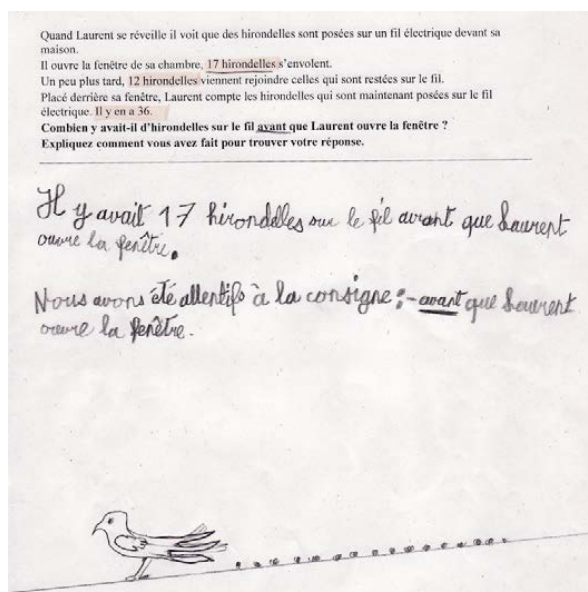 Quand Laurent se réveille il voit que des hirondelles sont posées sur un fil électrique devant sa
maison.
Il ouvre la fenêtre de sa chambre, 17 hirondelles s'envolent.
Un peu plus tard, 12 hirondelles viennent rejoindre celles qui sont restées sur le fil.
Placé derrière sa fenêtre, Laurent compte les hirondelles qui sont maintenant posées sur le fil
électrique. Il y en a 36.
Combien y avait-il d'hirondelles sur le fil avant que Laurent ouvre la fenêtre ?
Expliquez comment vous avez fait pour trouver votre réponse.
Il y avait 17 hirondelles sur le fil avant que Laurent
ouvre la fenêtre.
Nous avons été attentifs à la consigne : - avant que Laurent
ouvre la fenêtre.